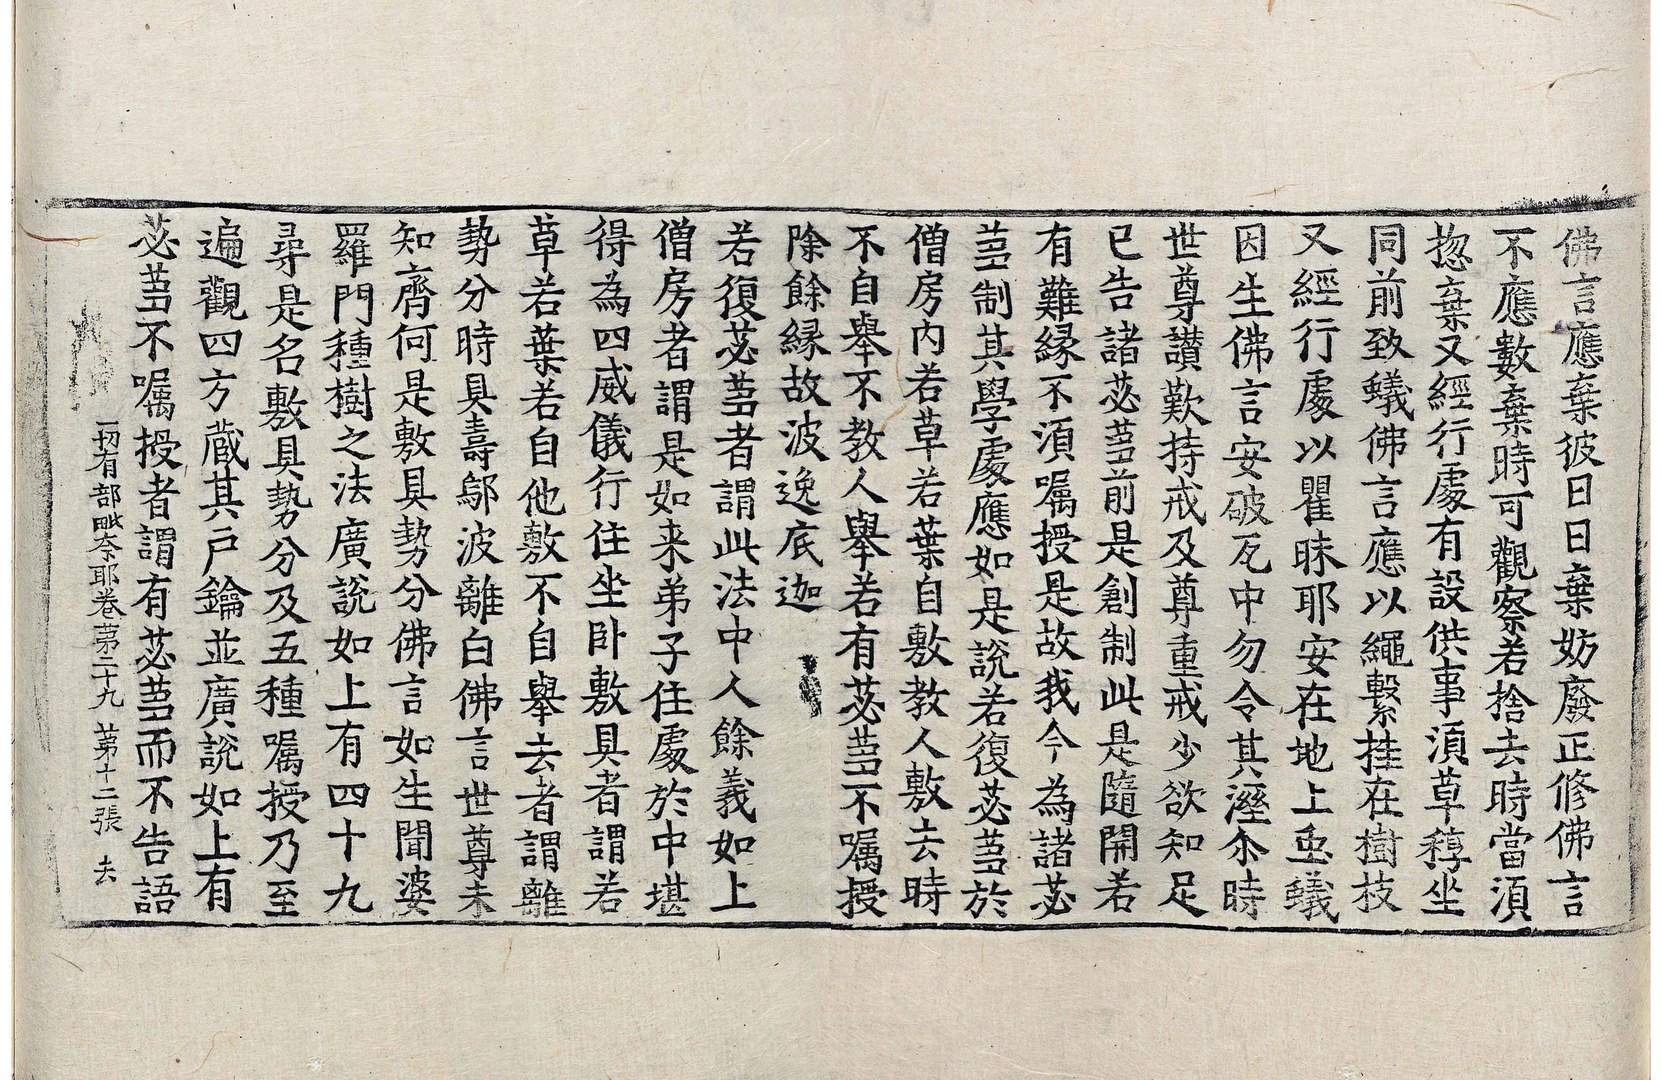 佛言應棄彼日日棄妨廢正修佛言
不應數棄時可觀察若捨去時當湏
揔棄又經行處有設供事湏草稕坐
同前致蟻佛言應以繩繫挂在樹枝
又經行處以瞿昧耶安在地上虫蟻
因生佛言安破瓦中勿令其溼尒時
世尊讃歎持戒及尊重戒少欲知足
已告諸苾蒭前是創制此是隨開若
有難縁不湏嘱授是故我今為諸苾
蒭制其學處應如是說若復苾蒭於
僧房内若草若葉自敷教人敷去時
不自舉不教人舉若有苾蒭不嘱授
除餘縁故波逸底迦
若復苾蒭者謂此法中人餘義如上
僧房者謂是如来弟子住處於中堪
得為四威儀行住坐卧敷具者謂若
草若葉若自他敷不自舉去者謂離
勢分時具壽鄔波離白佛言世尊未
知齊何是敷具勢分佛言如生聞婆
羅門種樹之法廣說如上有四十九
尋是名敷具勢分及五種嘱授乃至
遍觀四方蔵其戸鑰並廣說如上有
苾蒭不嘱授者謂有苾蒭而不告語
一切有部毗奈耶卷第二十九 第十二張 去